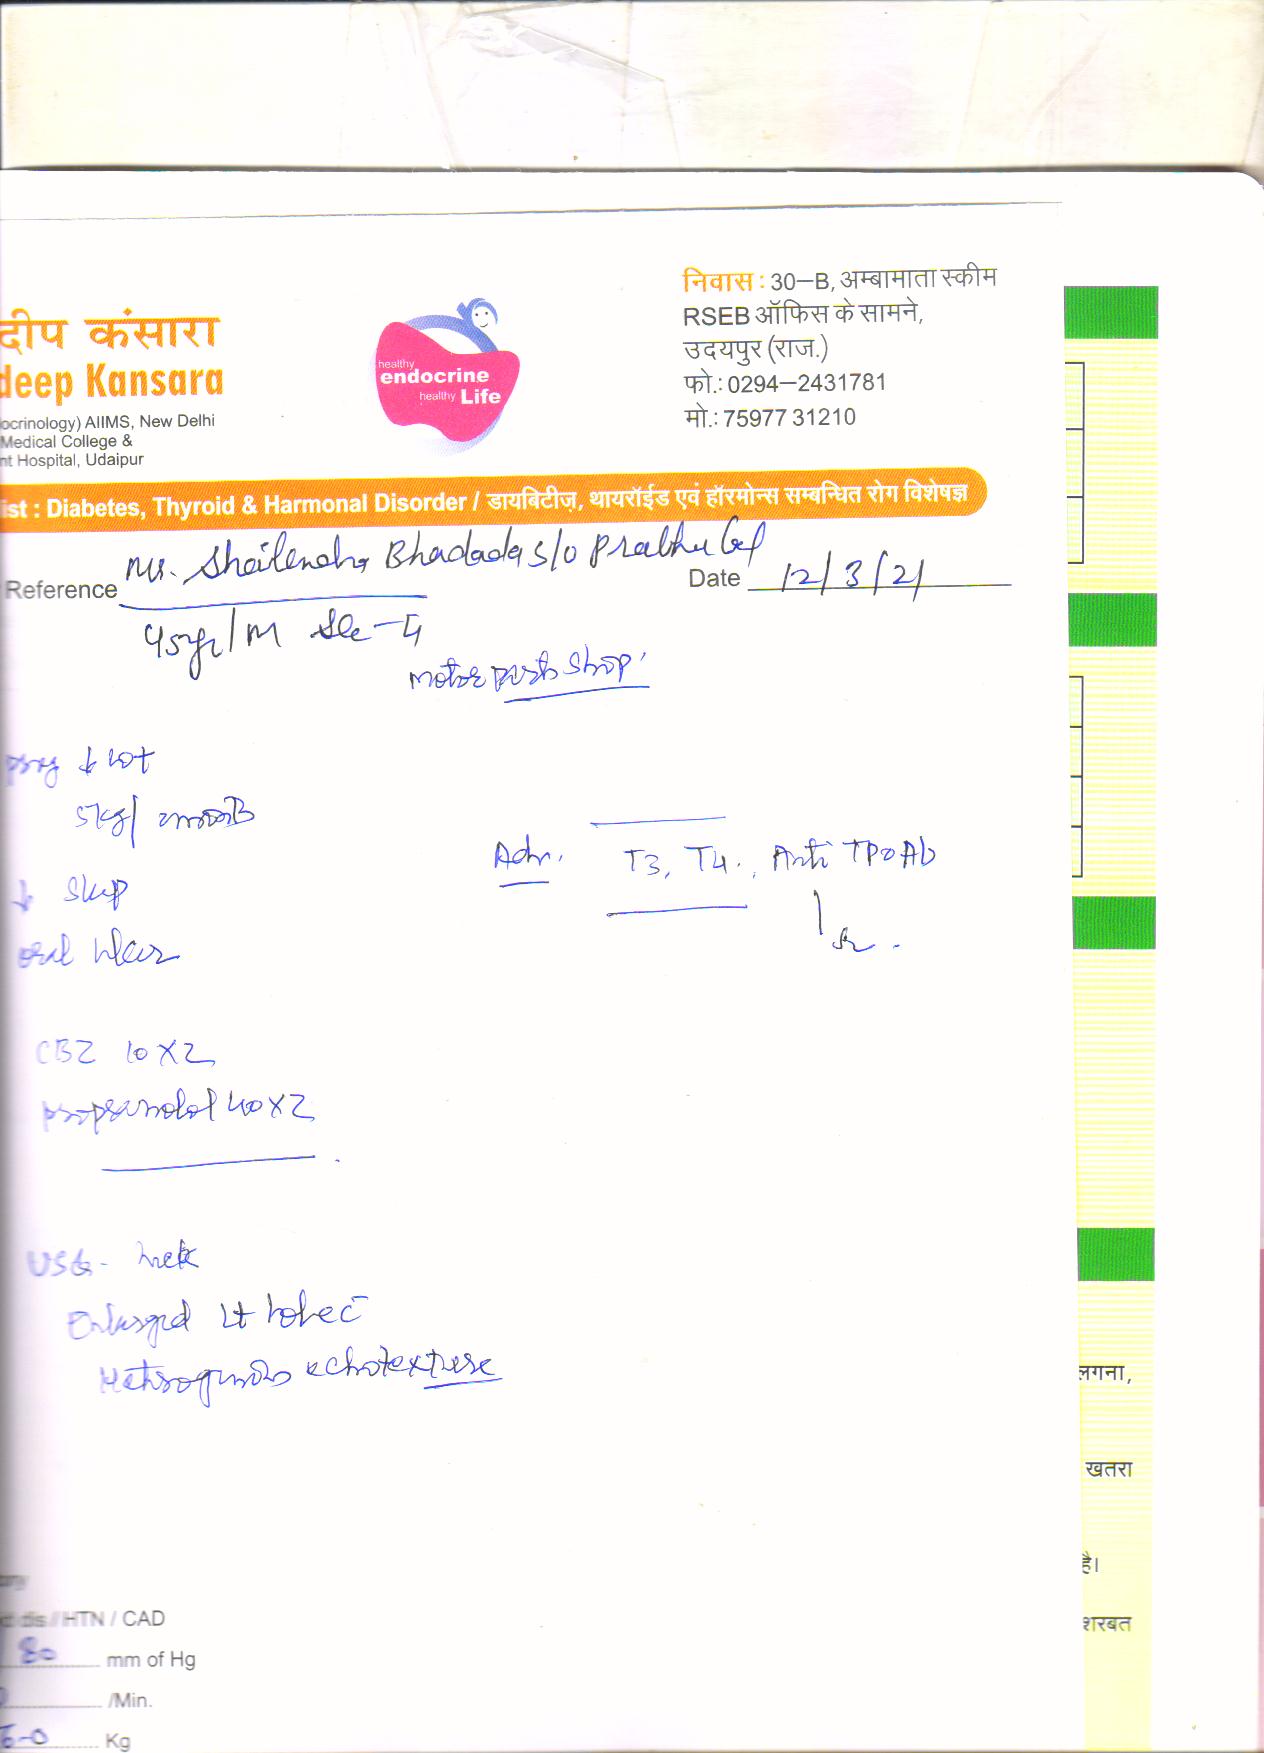 दीप कंसारा
deep Kansara
ocrinology) AIIMS, New Delhi
Medical College &
nt Hospital, Udaipur
healthy
endocrine
healthy Life
निवास : 30–B, अम्बामाता स्कीम
RSEB ऑफिस के सामने,
उदयपुर (राज.)
फो.: 0294–2431781
मो.: 75977 31210
ist : Diabetes, Thyroid & Harmonal Disorder / डायबिटीज़, थायरॉईड एवं हॉरमोन्स सम्बन्धित रोग विशेषज्ञ
Mr. Shailendra Bhadada s/o Prabhu
Reference
Date 12/3/21
45yr/M Sec-4
motor parts shop
↓ wt
5kg/
↓
oral ulcer
Adv. T3, T4, Anti TPO Ab
CBZ 10 X 2
propranolol 40 X 2
USG - neck
Enlarged Lt lobe c̄
Heterogenous echotexture
लगना,
खतरा
है।
शरबत
dis / HTN / CAD
80 mm of Hg
/Min.
Kg